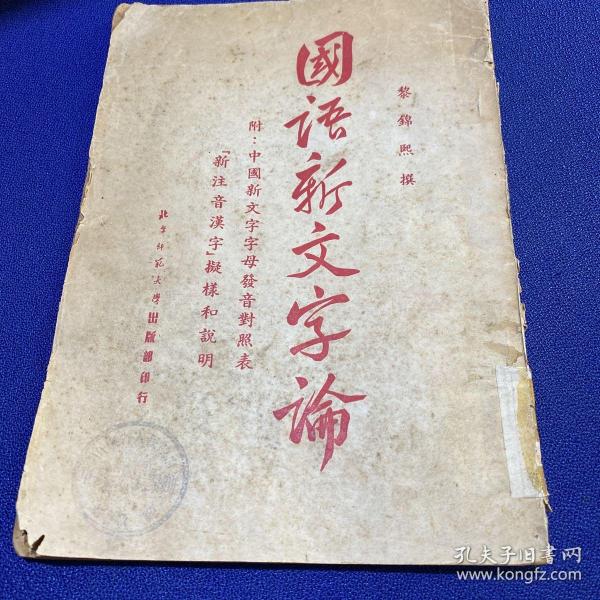 黎錦熙撰
國語新文字論
附：中國新文字字母發音對照表
「新注音漢字」擬樣和說明
北京師範大學出版部印行
孔夫子旧书网
www.kongfz.com